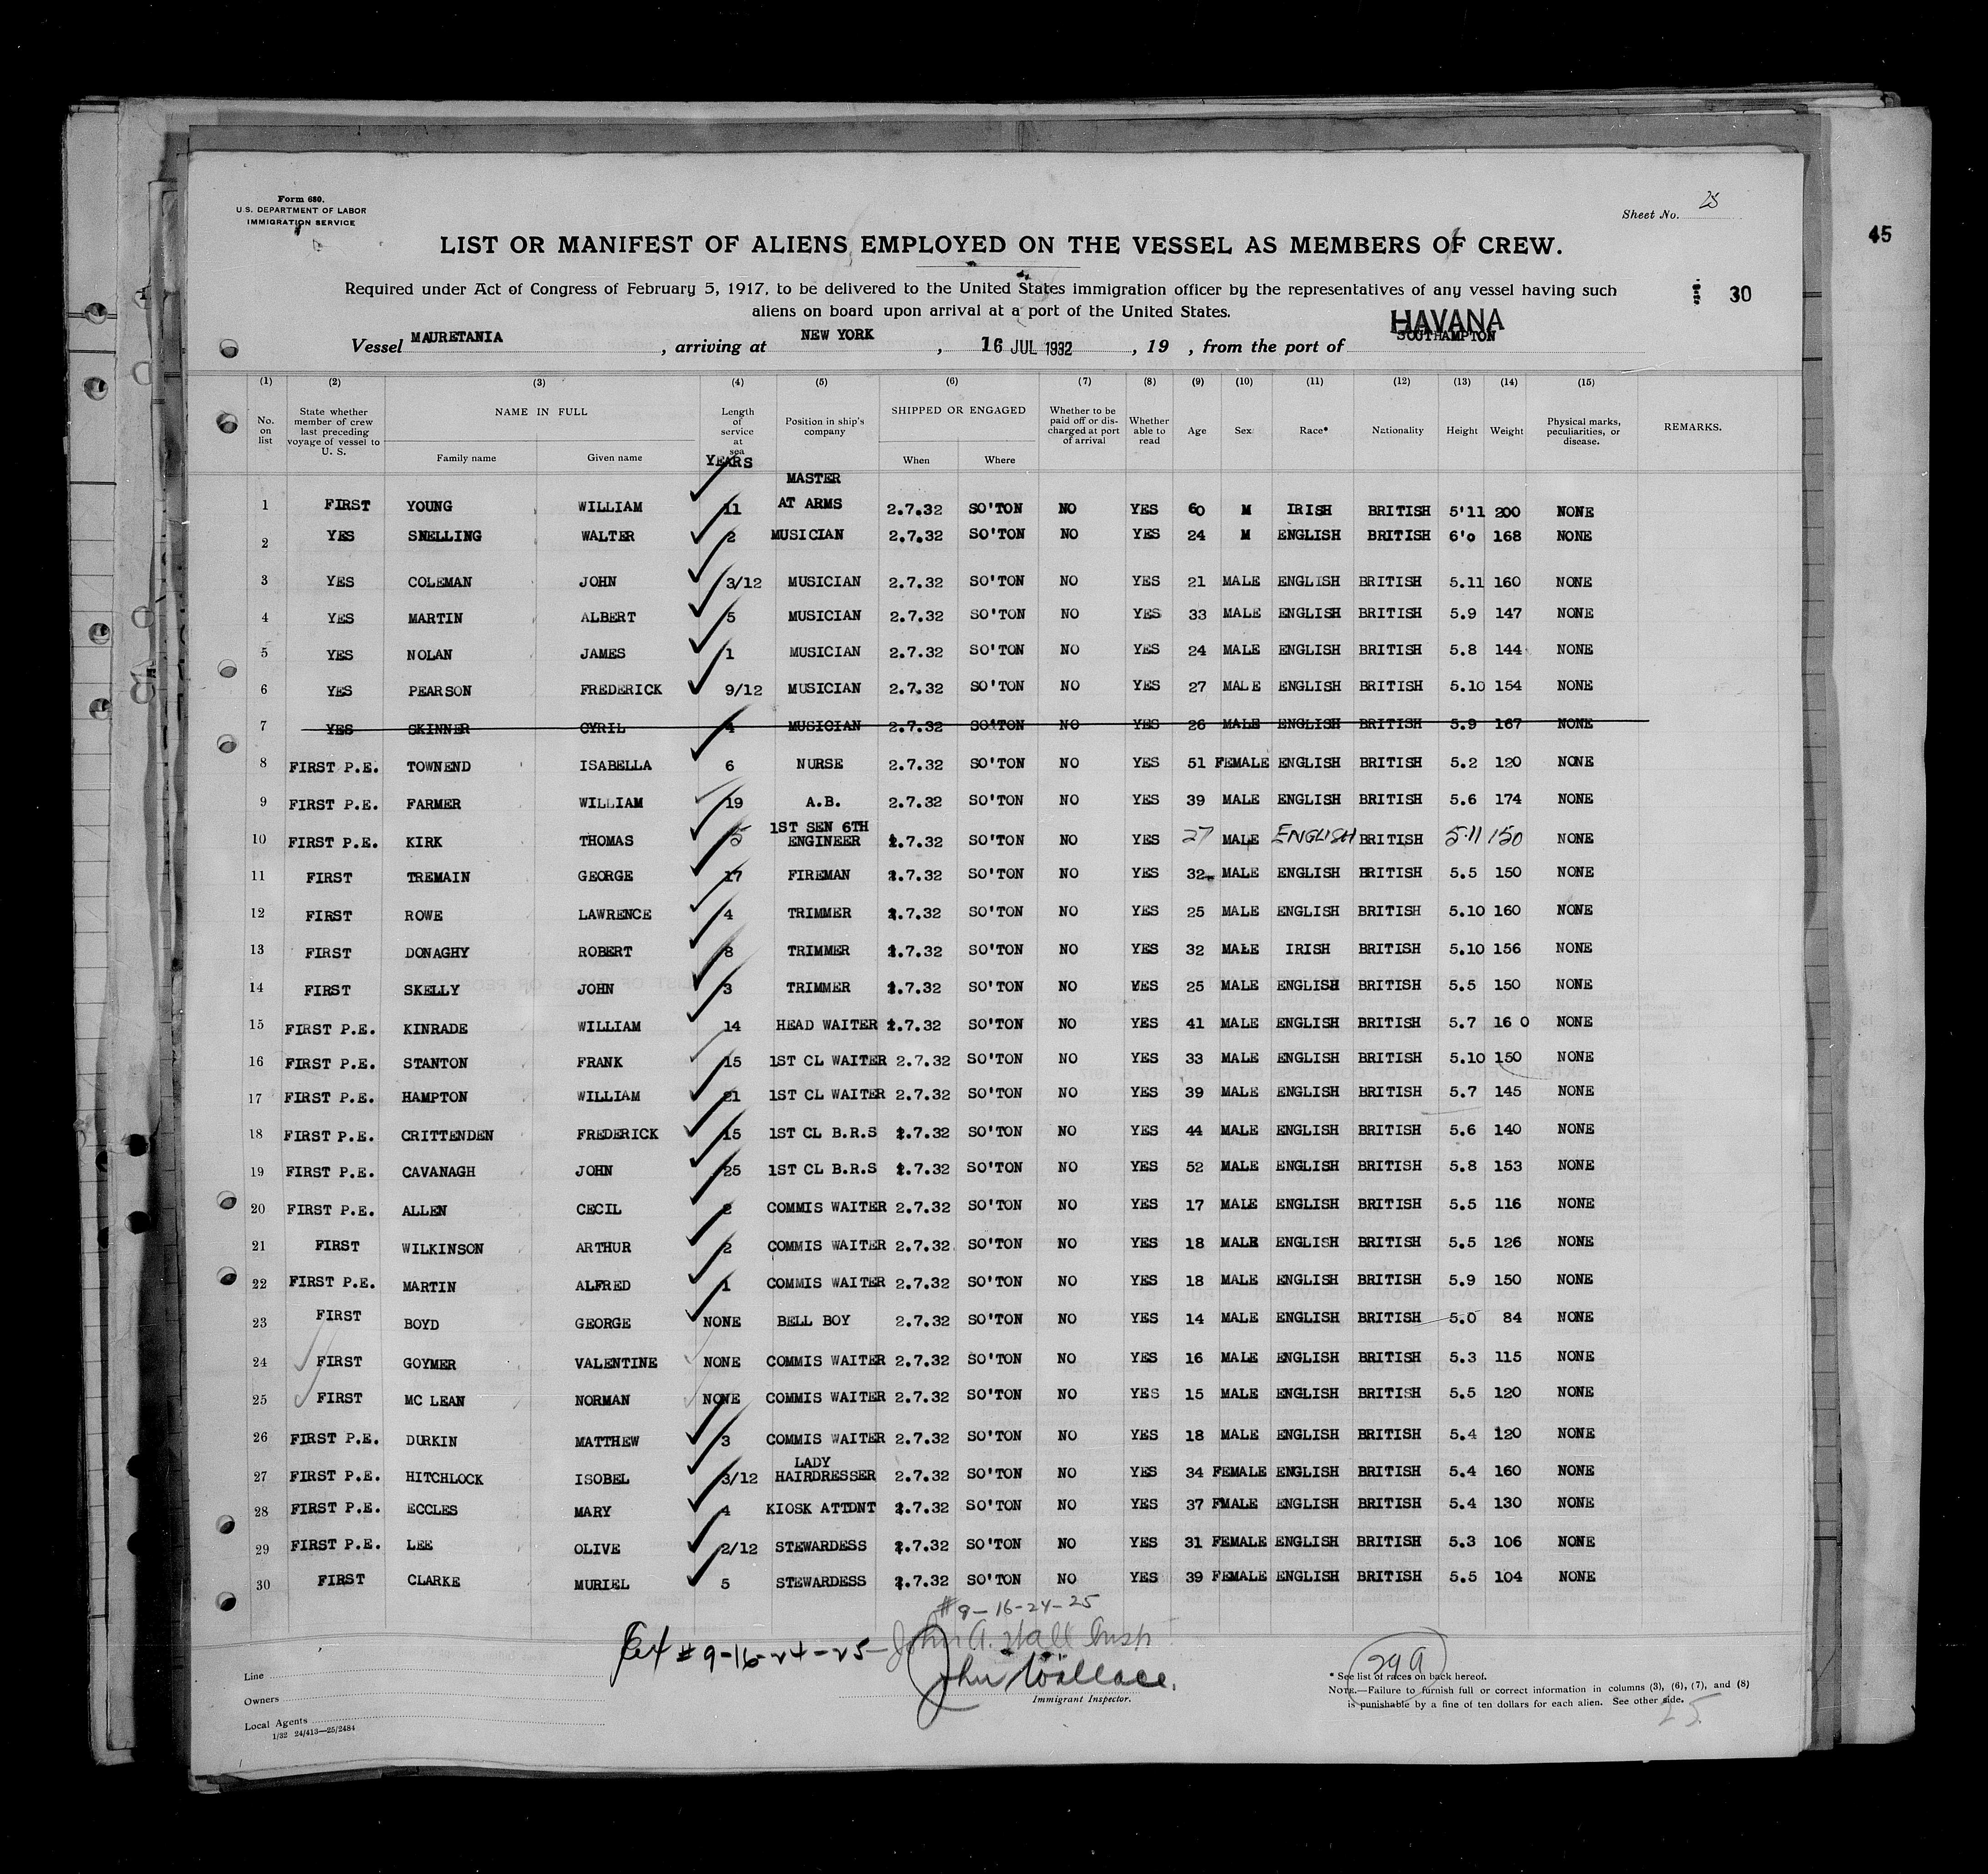 Form 680.
U.S. DEPARTMENT OF LABOR
IMMIGRATION SERVICE
Sheet No. 25
45
LIST OR MANIFEST OF ALIENS EMPLOYED ON THE VESSEL AS MEMBERS OF CREW.
Required under Act of Congress of February 5, 1917, to be delivered to the United States immigration officer by the representatives of any vessel having such
aliens on board upon arrival at a port of the United States.
30
HAVANA
Vessel MAURETANIA, arriving at NEW YORK, 16 JUL 1932, 19 , from the port of SOUTHAMPTON
(1) (2) (3) (4) (5) (6) (7) (8) (9) (10) (11) (12) (13) (14) (15)
No. on list State whether member of crew last preceding voyage of vessel to U. S. NAME IN FULL Family name Given name Length of service at sea YEARS Position in ship's company SHIPPED OR ENGAGED When Where Whether to be paid off or discharged at port of arrival Whether able to read Age Sex Race* Nationality Height Weight Physical marks, peculiarities, or disease. REMARKS.
1 FIRST YOUNG WILLIAM 11 MASTER AT ARMS 2.7.32 SO'TON NO YES 60 M IRISH BRITISH 5'11 200 NONE
2 YES SNELLING WALTER 2 MUSICIAN 2.7.32 SO'TON NO YES 24 M ENGLISH BRITISH 6'0 168 NONE
3 YES COLEMAN JOHN 3/12 MUSICIAN 2.7.32 SO'TON NO YES 21 MALE ENGLISH BRITISH 5.11 160 NONE
4 YES MARTIN ALBERT 5 MUSICIAN 2.7.32 SO'TON NO YES 33 MALE ENGLISH BRITISH 5.9 147 NONE
5 YES NOLAN JAMES 1 MUSICIAN 2.7.32 SO'TON NO YES 24 MALE ENGLISH BRITISH 5.8 144 NONE
6 YES PEARSON FREDERICK 9/12 MUSICIAN 2.7.32 SO'TON NO YES 27 MALE ENGLISH BRITISH 5.10 154 NONE
7 YES SKINNER CYRIL 4 MUSICIAN 2.7.32 SO'TON NO YES 26 MALE ENGLISH BRITISH 5.9 167 NONE
8 FIRST P.E. TOWNEND ISABELLA 6 NURSE 2.7.32 SO'TON NO YES 51 FEMALE ENGLISH BRITISH 5.2 120 NONE
9 FIRST P.E. FARMER WILLIAM 19 A.B. 2.7.32 SO'TON NO YES 39 MALE ENGLISH BRITISH 5.6 174 NONE
10 FIRST P.E. KIRK THOMAS 5 1ST SEN 6TH ENGINEER 2.7.32 SO'TON NO YES 27 MALE ENGLISH BRITISH 5.11 150 NONE
11 FIRST TREMAIN GEORGE 17 FIREMAN 2.7.32 SO'TON NO YES 32 MALE ENGLISH BRITISH 5.5 150 NONE
12 FIRST ROWE LAWRENCE 4 TRIMMER 2.7.32 SO'TON NO YES 25 MALE ENGLISH BRITISH 5.10 160 NONE
13 FIRST DONAGHY ROBERT 8 TRIMMER 2.7.32 SO'TON NO YES 32 MALE IRISH BRITISH 5.10 156 NONE
14 FIRST SKELLY JOHN 3 TRIMMER 2.7.32 SO'TON NO YES 25 MALE ENGLISH BRITISH 5.5 150 NONE
15 FIRST P.E. KINRADE WILLIAM 14 HEAD WAITER 2.7.32 SO'TON NO YES 41 MALE ENGLISH BRITISH 5.7 16 0 NONE
16 FIRST P.E. STANTON FRANK 15 1ST CL WAITER 2.7.32 SO'TON NO YES 33 MALE ENGLISH BRITISH 5.10 150 NONE
17 FIRST P.E. HAMPTON WILLIAM 21 1ST CL WAITER 2.7.32 SO'TON NO YES 39 MALE ENGLISH BRITISH 5.7 145 NONE
18 FIRST P.E. CRITTENDEN FREDERICK 15 1ST CL B.R.S 2.7.32 SO'TON NO YES 44 MALE ENGLISH BRITISH 5.6 140 NONE
19 FIRST P.E. CAVANAGH JOHN 25 1ST CL B.R.S 2.7.32 SO'TON NO YES 52 MALE ENGLISH BRITISH 5.8 153 NONE
20 FIRST P.E. ALLEN CECIL 2 COMMIS WAITER 2.7.32 SO'TON NO YES 17 MALE ENGLISH BRITISH 5.5 116 NONE
21 FIRST WILKINSON ARTHUR 2 COMMIS WAITER 2.7.32 SO'TON NO YES 18 MALE ENGLISH BRITISH 5.5 126 NONE
22 FIRST P.E. MARTIN ALFRED 1 COMMIS WAITER 2.7.32 SO'TON NO YES 18 MALE ENGLISH BRITISH 5.9 150 NONE
23 FIRST BOYD GEORGE NONE BELL BOY 2.7.32 SO'TON NO YES 14 MALE ENGLISH BRITISH 5.0 84 NONE
24 FIRST GOYMER VALENTINE NONE COMMIS WAITER 2.7.32 SO'TON NO YES 16 MALE ENGLISH BRITISH 5.3 115 NONE
25 FIRST MC LEAN NORMAN NONE COMMIS WAITER 2.7.32 SO'TON NO YES 15 MALE ENGLISH BRITISH 5.5 120 NONE
26 FIRST P.E. DURKIN MATTHEW 3 COMMIS WAITER 2.7.32 SO'TON NO YES 18 MALE ENGLISH BRITISH 5.4 120 NONE
27 FIRST P.E. HITCHLOCK ISOBEL 3/12 LADY HAIRDRESSER 2.7.32 SO'TON NO YES 34 FEMALE ENGLISH BRITISH 5.4 160 NONE
28 FIRST P.E. ECCLES MARY 4 KIOSK ATTDNT 2.7.32 SO'TON NO YES 37 FMALE ENGLISH BRITISH 5.4 130 NONE
29 FIRST P.E. LEE OLIVE 2/12 STEWARDESS 2.7.32 SO'TON NO YES 31 FEMALE ENGLISH BRITISH 5.3 106 NONE
30 FIRST CLARKE MURIEL 5 STEWARDESS 2.7.32 SO'TON NO YES 39 FEMALE ENGLISH BRITISH 5.5 104 NONE
#9-16-24-25
#9-16-24-25- John A. Hall Insp
John Wallace.
Immigrant Inspector.
Line
Owners
Local Agents
1/32 24/413—25/2484
29A
* See list of races on back hereof.
NOTE.—Failure to furnish full or correct information in columns (3), (6), (7), and (8)
is punishable by a fine of ten dollars for each alien. See other side.
25